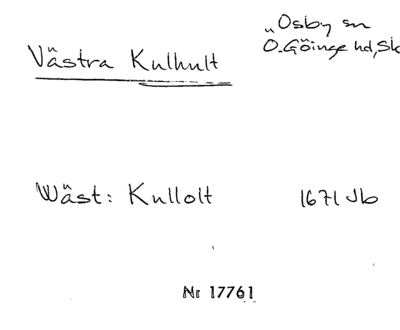 "Osby sn
Västra Kulhult Ö. Göinge hd, Sk
Wäst: Kullolt 1671 Jb
Nr 17761